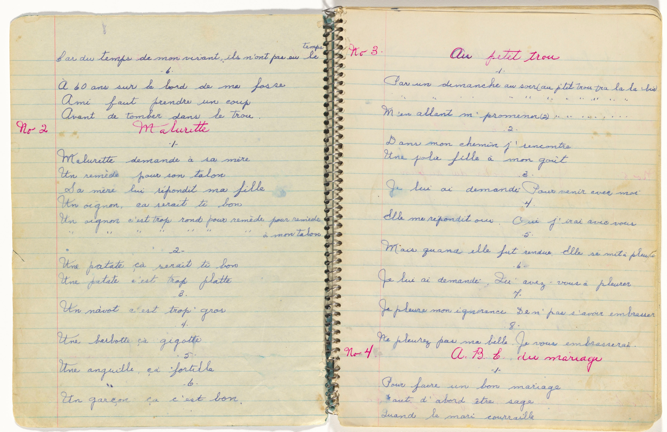 temps
Car du temps de mon vivant, ils n'ont pas eu le
6.
À 60 ans sur le bord de ma fosse
Ami faut prendre un coup
Avant de tomber dans le trou.
No 2 Malurette
1.
Malurette demande à sa mère
Un remède pour son talon
Sa mère lui répondit ma fille
Un oignon, ca serait ti bon
Un oignon c'est trop rond pour remède pour remède
" " " " " " à mon talon
" 2.
Une patate ça serait ti bon
Une patate c'est trop platte
3.
Un navot c'est trop gros
4.
Une barbotte ça gigotte
5.
Une anguille, ça fortille
" 6.
Un garçon ça c'est bon.
No 3. Au petit trou
1.
Par un dimanche au soir, au p'tit trou la la bis
M'en allant m' promener (2) " " " "
2.
Dans mon chemin j'rencontre
Une jolie fille à mon goût
3.
Je lui ai demandé Pour venir avec moi
4.
Elle me répondit oui Oui j'irai avec vous
5.
Mais quand elle fut rendue Elle se mit à
6.
Je lui ai demandé, Qu' avez-vous à pleurer
7.
Je pleure mon ignorance De n' pas s'avoir embrasser
8.
Ne pleurez pas ma belle Je vous embrasserai.
No. 4 A. B. C. du mariage
1.
Pour faire un bon mariage
Faut d'abord être sage
Quand le mari courraille